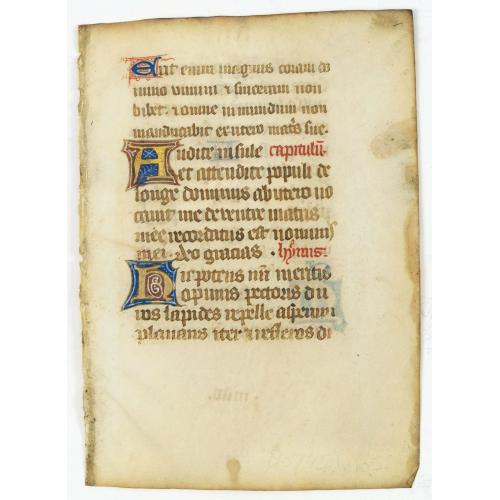 Erit enim magnus coram do
mino vinum & siceram non
bibet & omne in mundum non
manducabit ex utero matris sue.
Audite insule capitulum
et attendite populi de
longe dominus ab utero vo
cavit me de ventre matris
mee recordatus est nominis
mei. deo gracias. hymnus.
Hic potens nimis meritis
opimis pectoris du
ros lapides repelle asperum
planans iter & reflexos di